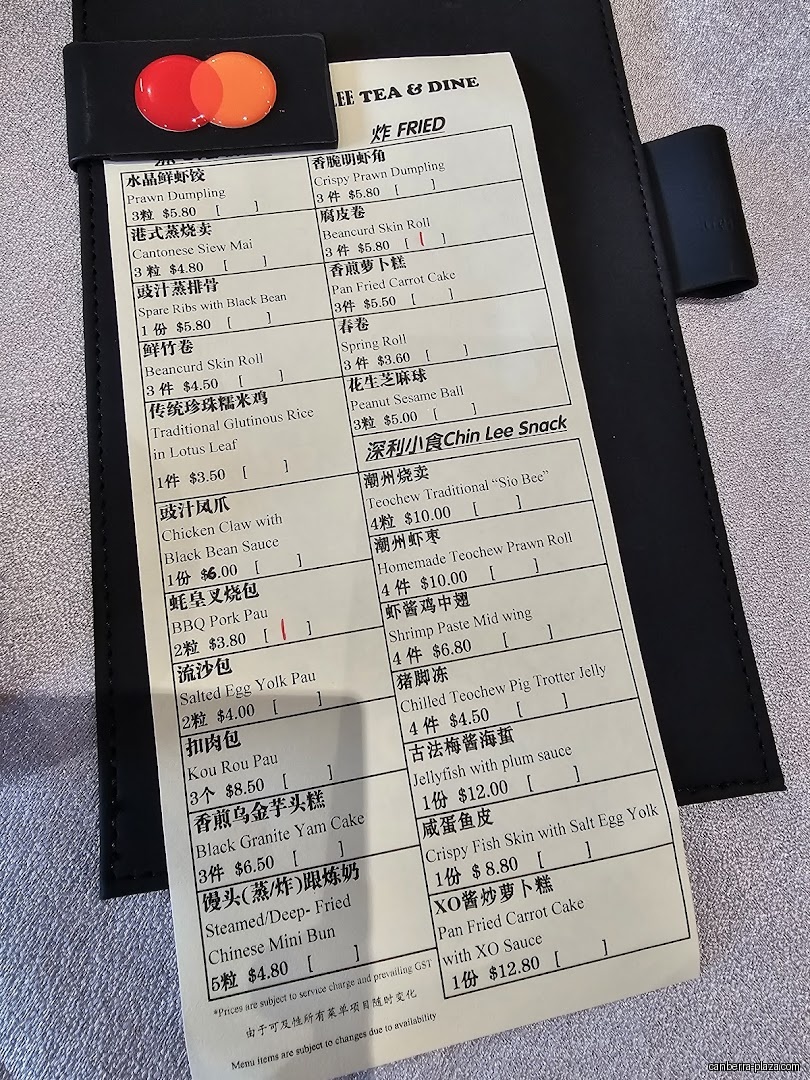 LEE TEA & DINE
水晶鲜虾饺
Prawn Dumpling
3粒 $5.80 [ ]
港式蒸烧卖
Cantonese Siew Mai
3 粒 $4.80 [ ]
豉汁蒸排骨
Spare Ribs with Black Bean
1 份 $5.80 [ ]
鲜竹卷
Beancurd Skin Roll
3 件 $4.50 [ ]
传统珍珠糯米鸡
Traditional Glutinous Rice
in Lotus Leaf
1件 $3.50 [ ]
豉汁凤爪
Chicken Claw with
Black Bean Sauce
1份 $6.00 [ ]
蚝皇叉烧包
BBQ Pork Pau
2粒 $3.80 [ | ]
流沙包
Salted Egg Yolk Pau
2粒 $4.00 [ ]
扣肉包
Kou Rou Pau
3个 $8.50 [ ]
香煎乌金芋头糕
Black Granite Yam Cake
3件 $6.50 [ ]
馒头(蒸/炸)跟炼奶
Steamed/Deep- Fried
Chinese Mini Bun
5粒 $4.80 [ ]
炸 FRIED
香脆明虾角
Crispy Prawn Dumpling
3 件 $5.80 [ ]
腐皮卷
Beancurd Skin Roll
3 件 $5.80 [ | ]
香煎萝卜糕
Pan Fried Carrot Cake
3件 $5.50 [ ]
春卷
Spring Roll
3 件 $3.60 [ ]
花生芝麻球
Peanut Sesame Ball
3粒 $5.00 [ ]
深利小食Chin Lee Snack
潮州烧卖
Teochew Traditional “Sio Bee”
4粒 $10.00 [ ]
潮州虾枣
Homemade Teochew Prawn Roll
4 件 $10.00 [ ]
虾酱鸡中翅
Shrimp Paste Mid wing
4 件 $6.80 [ ]
猪脚冻
Chilled Teochew Pig Trotter Jelly
4 件 $4.50 [ ]
古法梅酱海蜇
Jellyfish with plum sauce
1份 $12.00 [ ]
咸蛋鱼皮
Crispy Fish Skin with Salt Egg Yolk
1份 $ 8.80 [ ]
XO酱炒萝卜糕
Pan Fried Carrot Cake
with XO Sauce
1份 $12.80 [ ]
*Prices are subject to service charge and prevailing GST
由于可及性所有菜单项目随时变化
Menu items are subject to changes due to availability
canberra-plaza.com